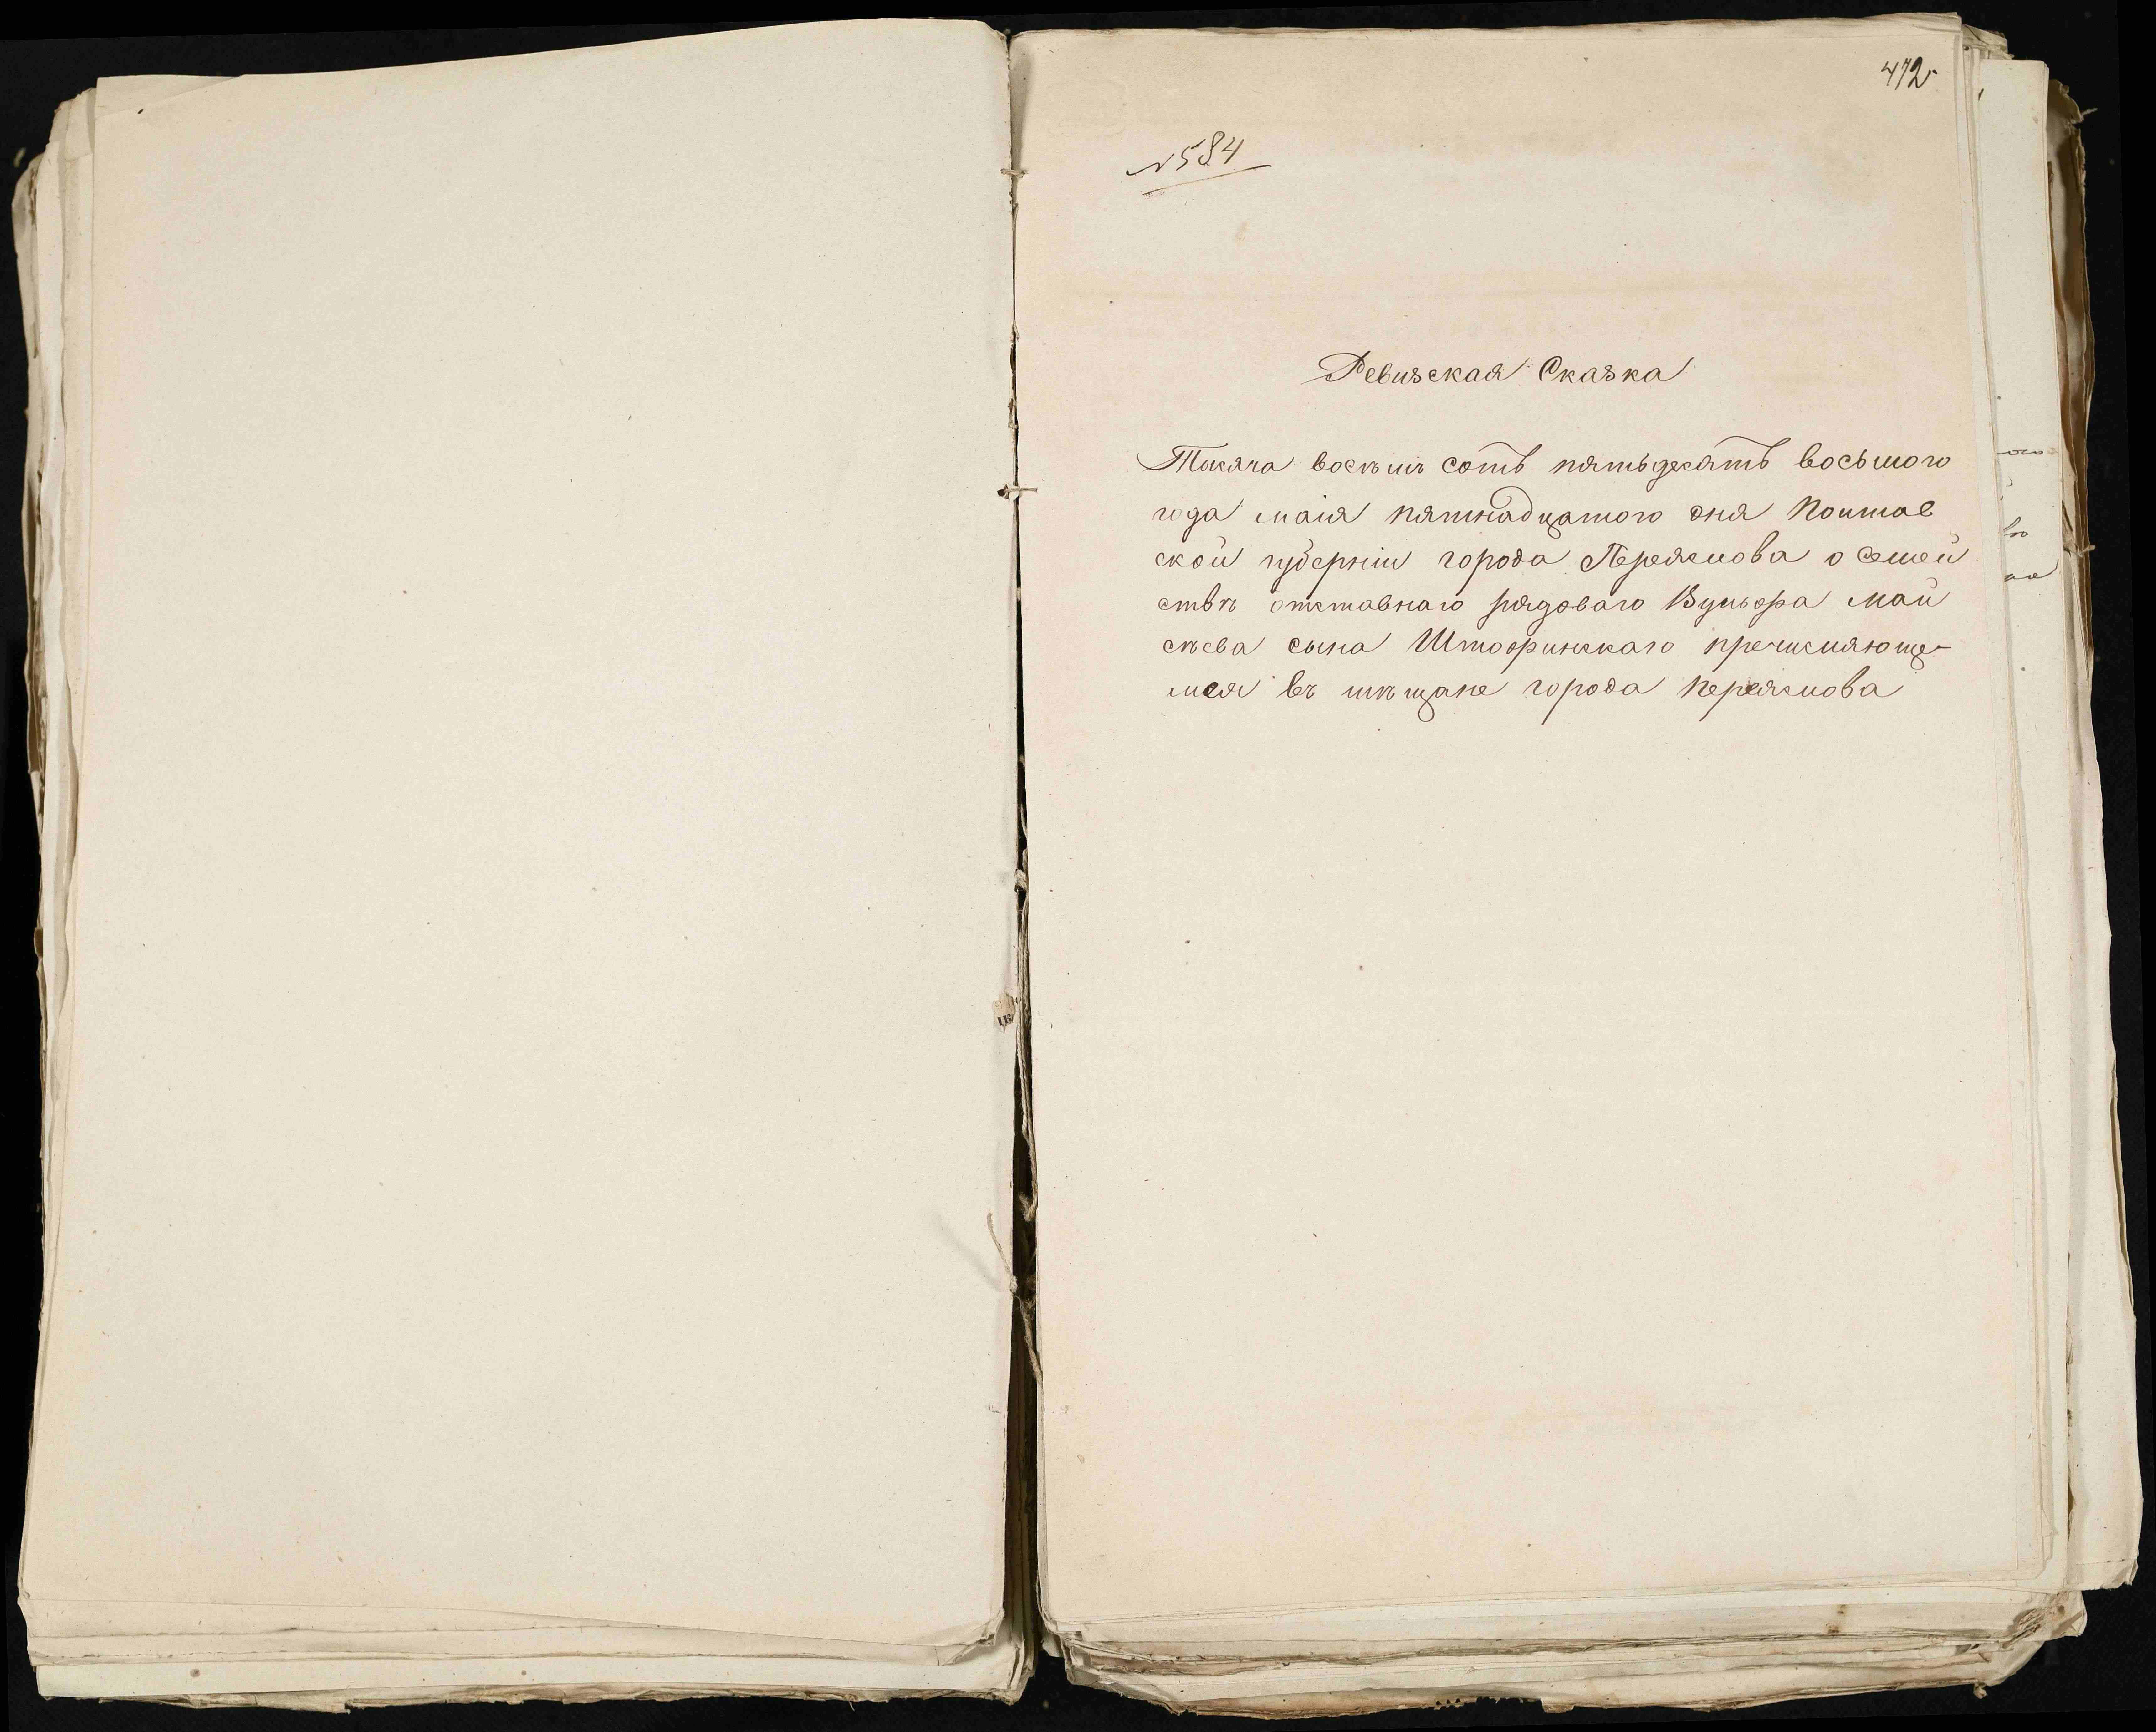 472
№ 584
Ревизская Сказка
Тысяча восѣмъ сотъ пятьдесятъ восьмого
года маія пятнадцатого дня Полтав
ской губерніи города Переяслова о семей
ствѣ отставнаго рядоваго Вульфа Май
сѣева сына Штофринскаго пречисляюще-
мся въ мѣщане города переяслова